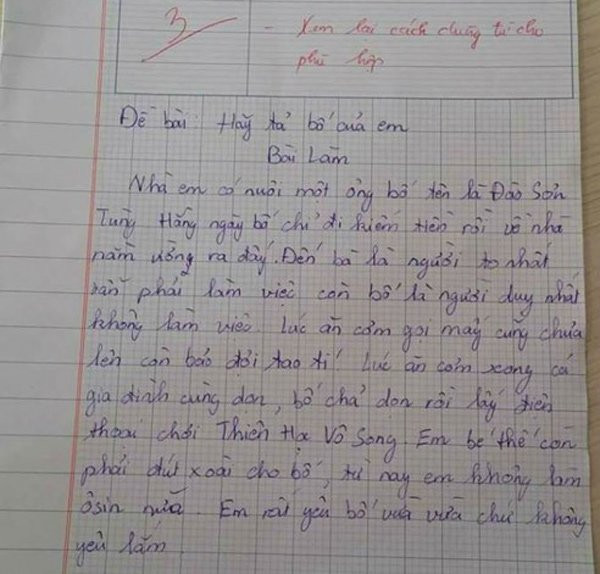 3
- Xem lại cách dùng từ cho
phù hợp
Đề bài: Hãy tả bố của em
Bài Làm
Nhà em có nuôi một ông bố tên là Đào Sơn
Tùng Hằng ngày bố chỉ đi kiếm tiền rồi về nhà
nằm ườn ra đấy. Đến bà là người to nhất
vẫn phải làm việc còn bố là người duy nhất
không làm việc. Lúc ăn cơm gọi mãi cũng chưa
lên còn bảo đợi tao tí! Lúc ăn cơm xong cả
gia đình cùng dọn, bố chả dọn rồi lấy điện
thoại chơi Thiên Hạ Vô Song. Em bé thế còn
phải đút xoài cho bố, từ nay em không làm
ôsin nữa. Em rất yêu bố vừa vừa chứ không
yêu lắm.